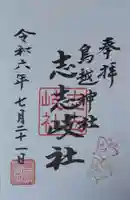 奉拝
鳥越神社
志志岐社
令和六年七月二十一日